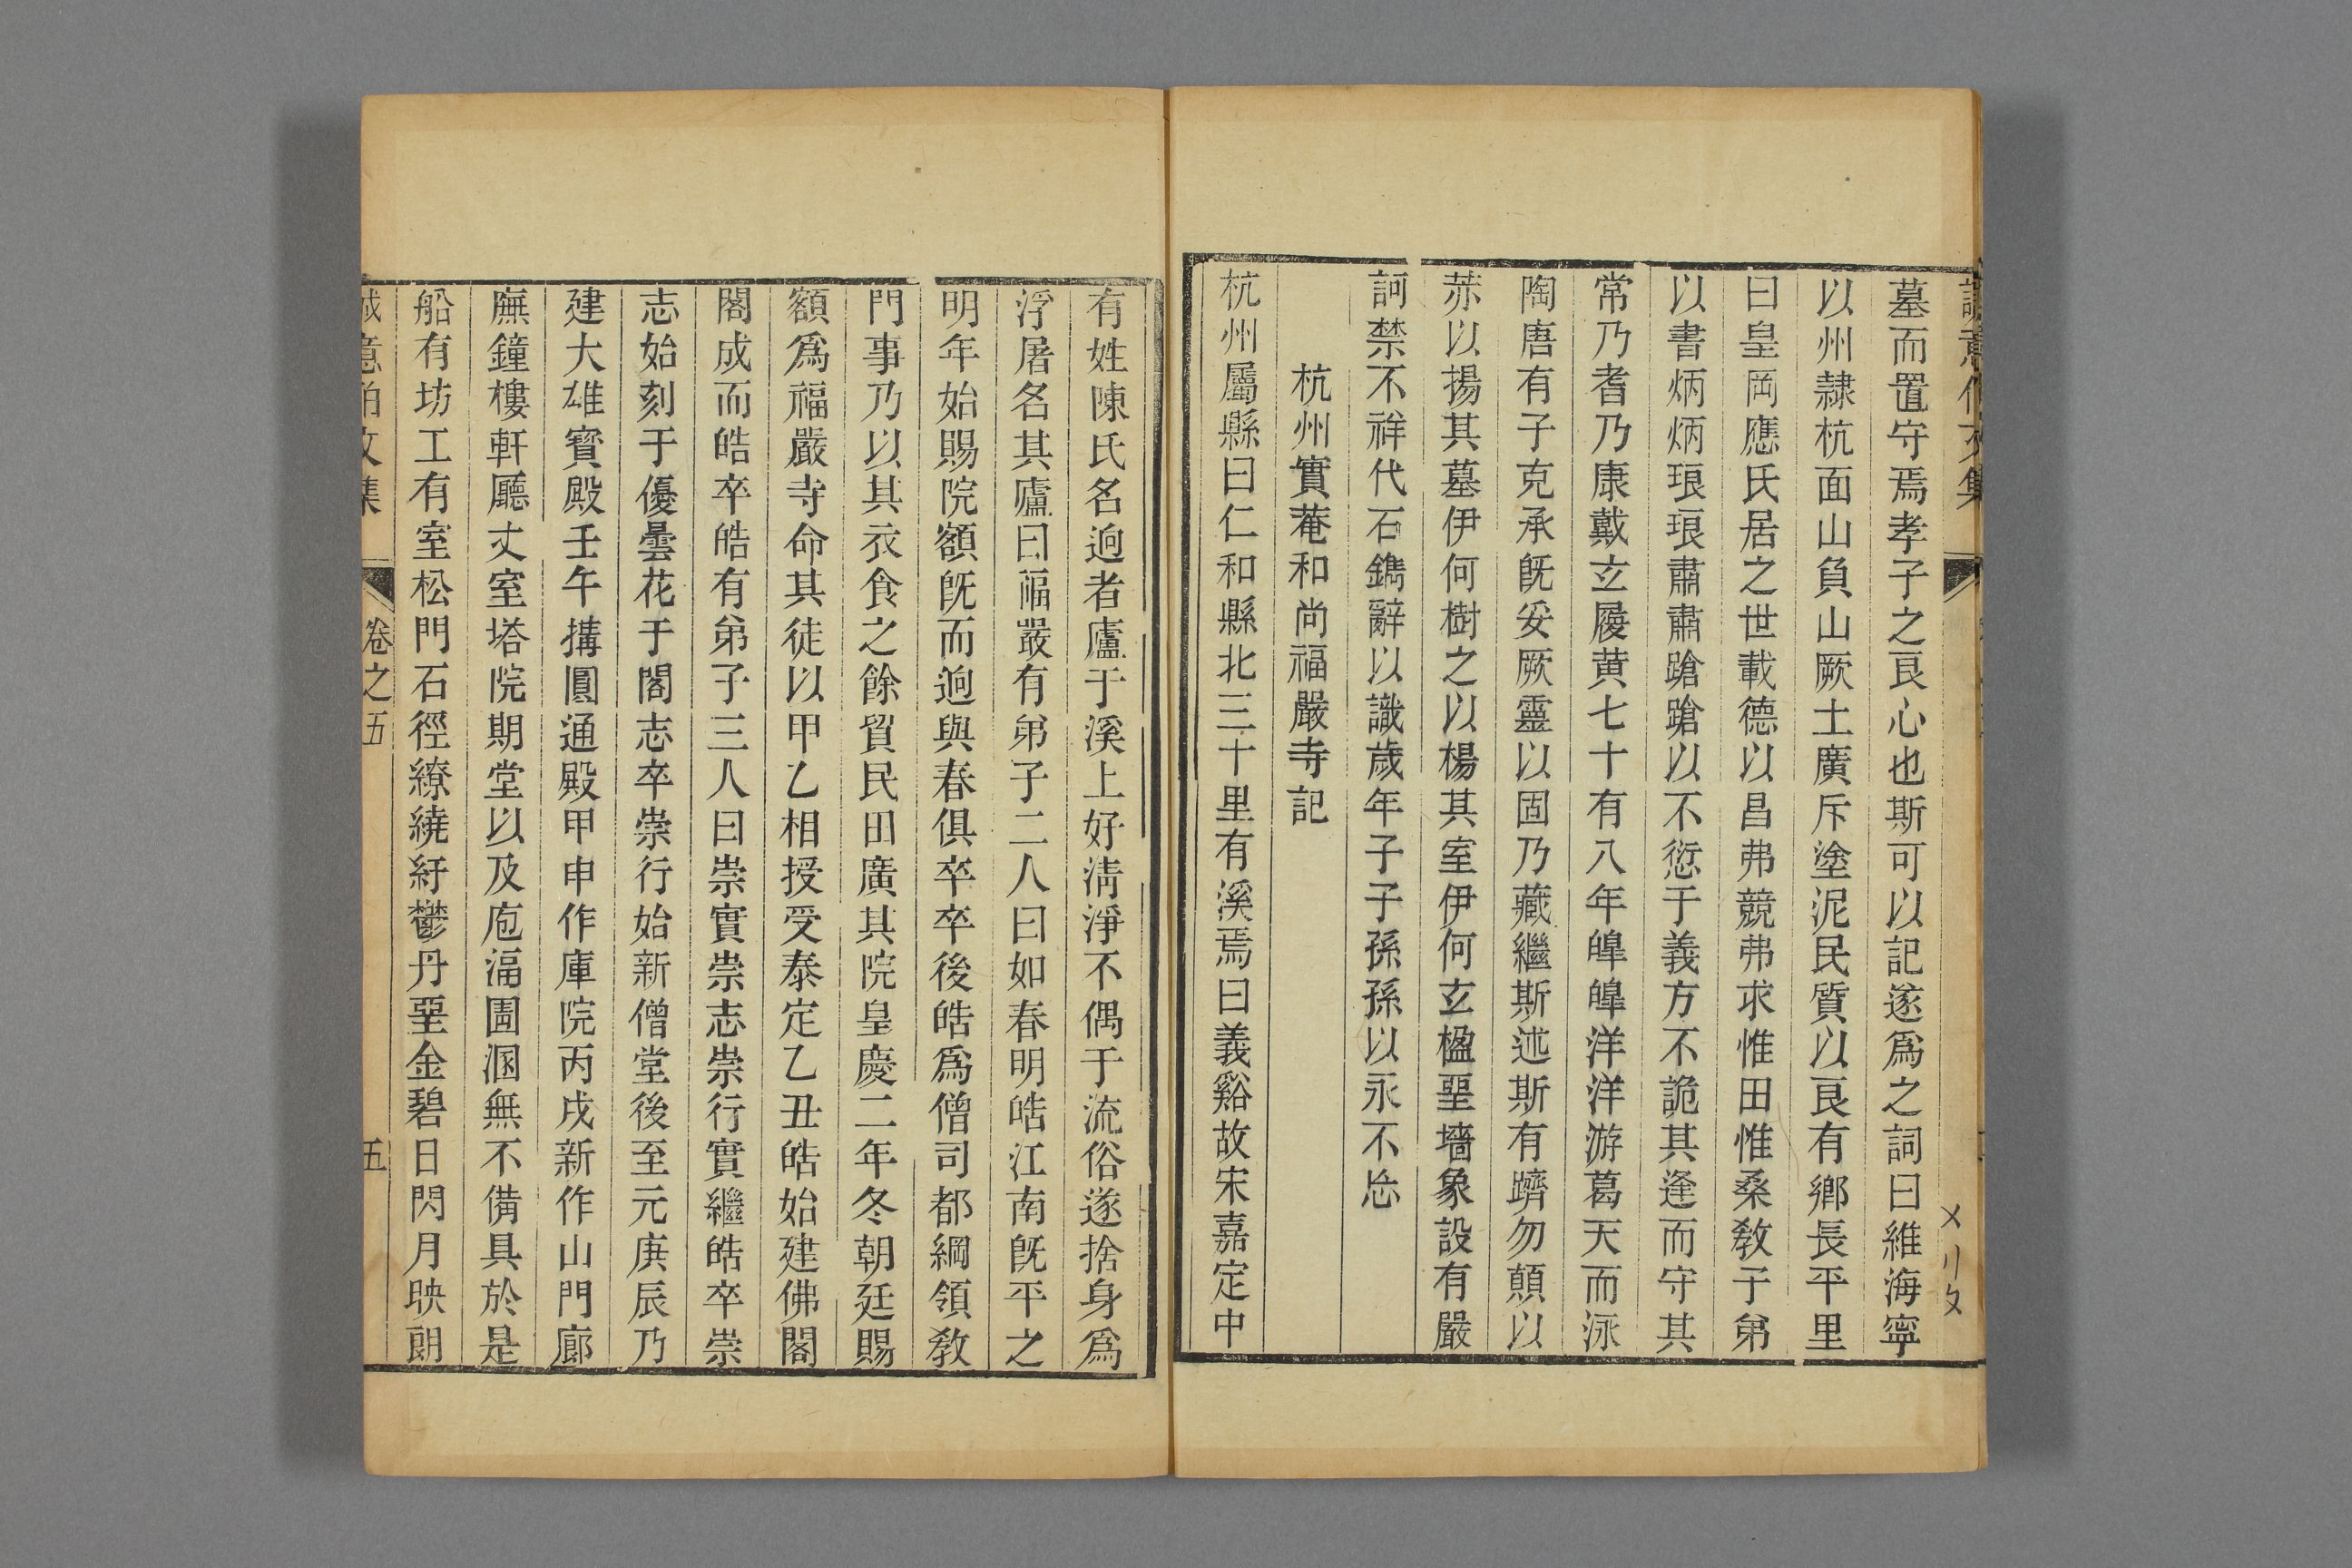 誠意伯文集
墓而置守焉孝子之良心也斯可以記遂爲之詞曰維海寧
以州隷杭面山負山厥土廣斥塗泥民質以良有鄉長平里
曰皇岡應氏居之世載德以昌弗競弗求惟田惟桑敎子弟
以書炳炳琅琅肅肅蹌蹌以不愆于義方不詭其逢而守其
常乃耆乃康戴玄履黄七十有八年皥皥洋洋游葛天而泳
陶唐有子克承旣妥厥靈以固乃藏繼斯述斯有躋勿顛以
荞以揚其墓伊何樹之以楊其室伊何玄楹堊墻象設有嚴
訶禁不祥代石鐫辭以識歲年子子孫孫以永不忘
杭州實菴和尚福嚴寺記
杭州屬縣曰仁和縣北三十里有溪焉曰義谿故宋嘉定中
有姓陳氏名逈者廬于溪上好淸淨不偶于流俗遂捨身爲
浮屠名其廬曰福嚴有弟子二人曰如春明皓江南旣平之
明年始賜院額旣而逈與春俱卒卒後皓爲僧司都綱領敎
門事乃以其衣食之餘貿民田廣其院皇慶二年冬朝廷賜
額爲福嚴寺命其徒以甲乙相授受泰定乙丑皓始建佛閣
閣成而皓卒皓有弟子三人曰崇實崇志崇行實繼皓卒崇
志始刻于優曇花于閣志卒崇行始新僧堂後至元庚辰乃
建大雄寶殿壬午搆圓通殿甲申作庫院丙戌新作山門廊
廡鐘樓軒廳丈室塔院期堂以及庖湢圊溷無不備具於是
船有坊工有室松門石徑繚繞紆鬱丹堊金碧日閃月映朗
誠意伯文集
卷之五
五